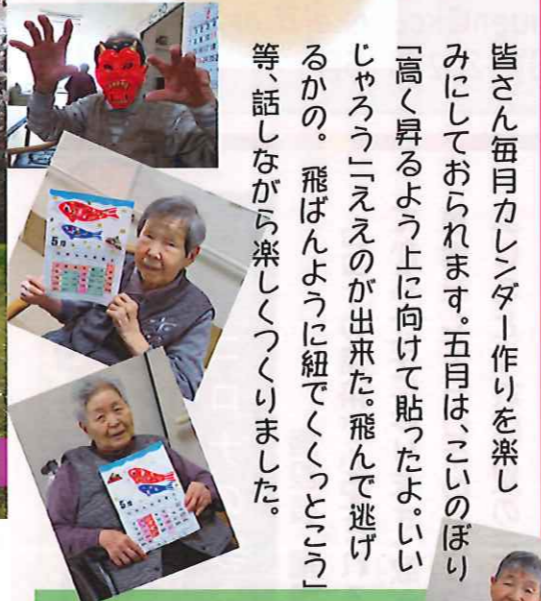 皆さん毎月カレンダー作りを楽し
みにしておられます。五月は、こいのぼり
「高く昇るよう上に向けて貼ったよ。いい
じゃろう」「ええのが出来た。飛んで逃げ
るかの。 飛ばんように紐でくくっとこう」
等、話しながら楽しくつくりました。
5月
5月